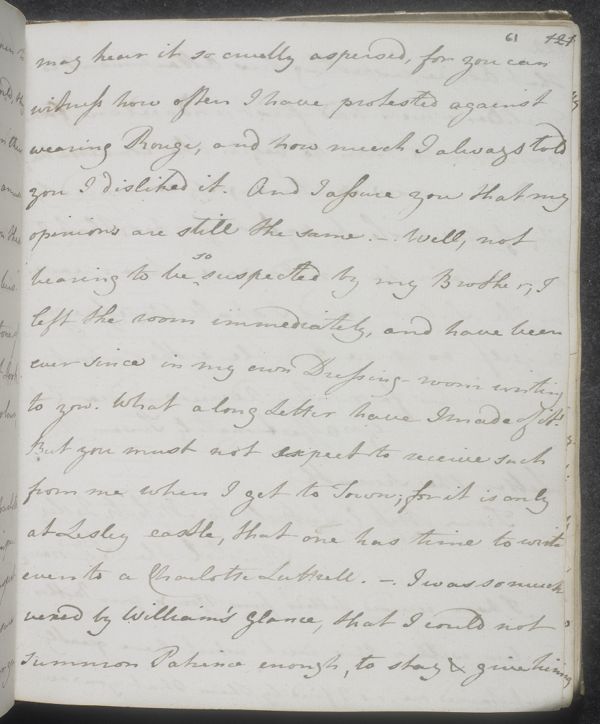 61 121
may hear it so cruelly aspersed, for you can
witness how often I have protested against
wearing Rouge, and how much I always told
you I disliked it. And I assure you that my
opinions are still the same. _. Well, not
bearing to be so suspected by my Brother, I
left the room immediately, and have been
ever since in my own Dressing-room writing
to you. What a long Letter have I made of it.
But you must not expect to receive such
from me when I get to Town; for it is only
at Lesley castle, that one has time to write
even to a Charlotte Luttrell. _. I was so much
vexed by William's glance, that I could not
summon Patience enough, to stay & give him